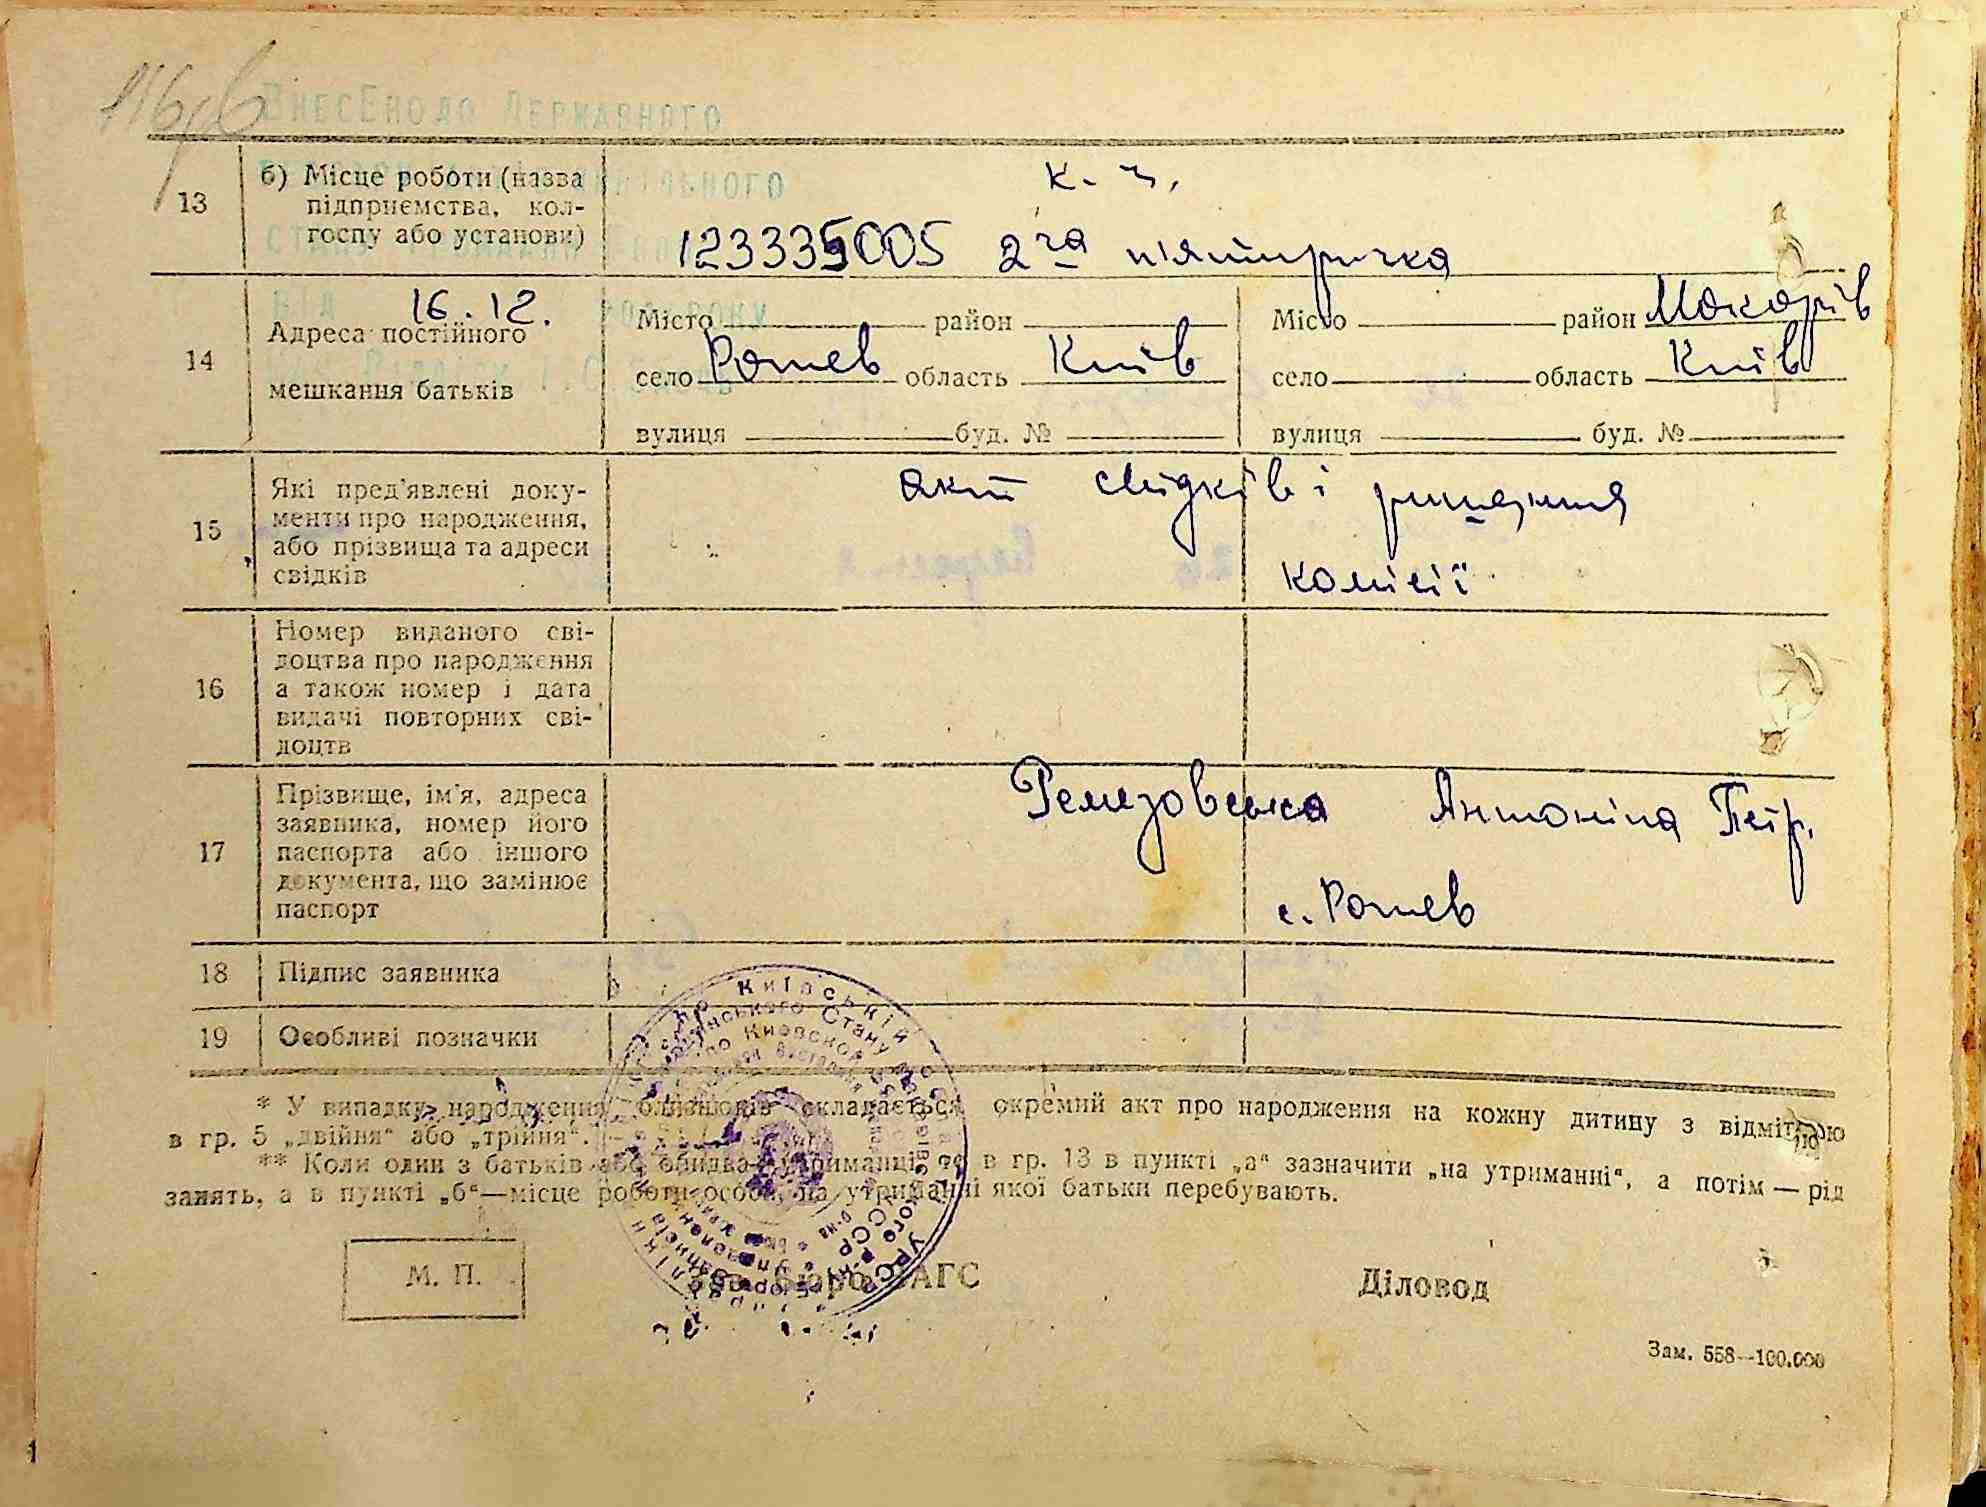 Внесено до Державного
13
б) Місце роботи (назва
підприємства, кол-
госпу або установи)
к. ч.
123335005 2га п'ятирічка
14
16.12.
Адреса постійного
мешкання батьків
Місто район
село Рожев область Київ
вулиця буд. №
Місто район Макарів
село область Київ
вулиця буд. №
15
Які пред'явлені доку-
менти про народження,
або прізвища та адреси
свідків
акт свідків і ришення
комісії
16
Номер виданого сві-
доцтва про народження
а також номер і дата
видачі повторних сві-
доцтв
17
Прізвище, ім'я, адреса
заявника, номер його
паспорта або іншого
документа, що замінює
паспорт
Ремезовська Антоніна Петр.
с. Рожев
18
Підпис заявника
19
Особливі позначки
* У випадку народження близнюків складається окремий акт про народження на кожну дитину з відміткою
в гр. 5 „двійня“ або „трійня“.
** Коли один з батьків або обидва утриманці, то в гр. 13 в пункті „а“ зазначити „на утриманні“, а потім — рід
занять, а в пункті „б“—місце роботи особи, на утриманні якої батьки перебувають.
М. П.
Зав. Бюро ЗАГС
Діловод
Зам. 558—100.000